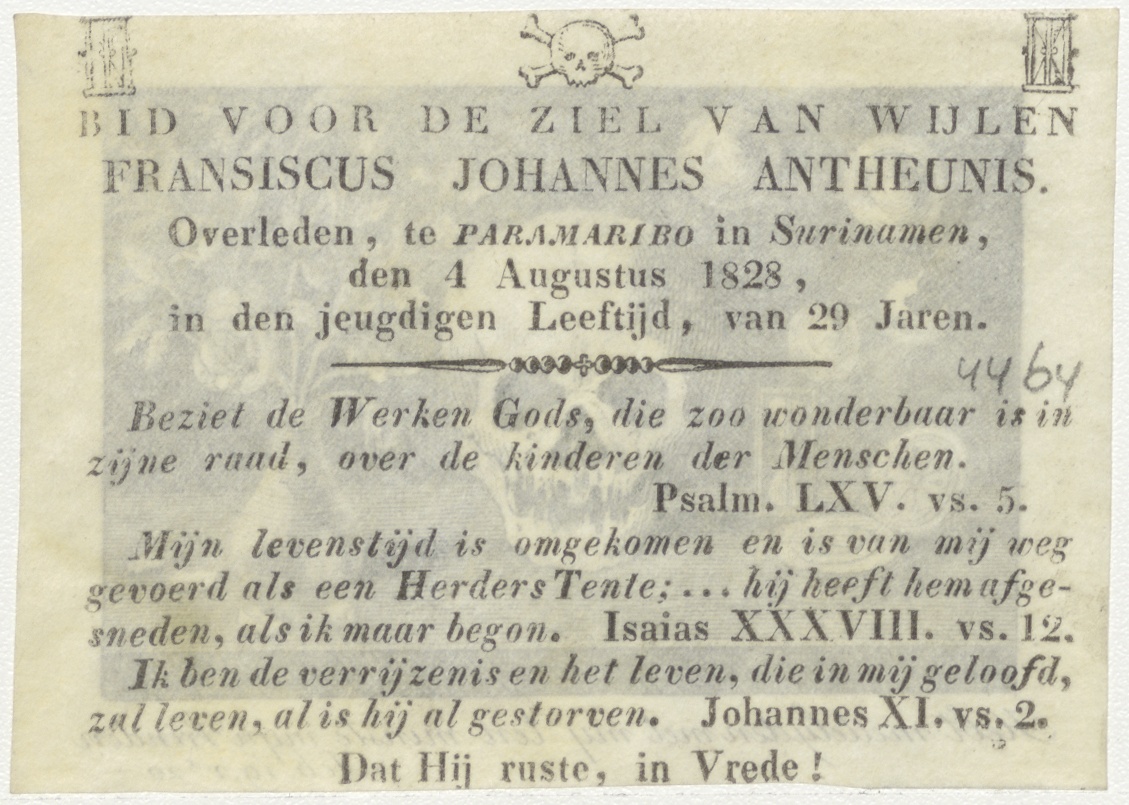 BID VOOR DE ZIEL VAN WIJLEN
FRANSISCUS JOHANNES ANTHEUNIS.
Overleden, te PARAMARIBO in Surinamen,
den 4 Augustus 1828,
in den jeugdigen Leeftijd, van 29 Jaren.
4464
Beziet de Werken Gods, die zoo wonderbaar is in
zijne raad, over de kinderen der Menschen.
Psalm. LXV. vs. 5.
Mijn levenstijd is omgekomen en is van mij weg
gevoerd als een Herders Tente; ... hij heeft hem afge-
sneden, als ik maar begon. Isaias XXXVIII. vs. 12.
Ik ben de verrijzenis en het leven, die in mij geloofd,
zal leven, al is hij al gestorven. Johannes XI. vs. 2.
Dat Hij ruste, in Vrede!